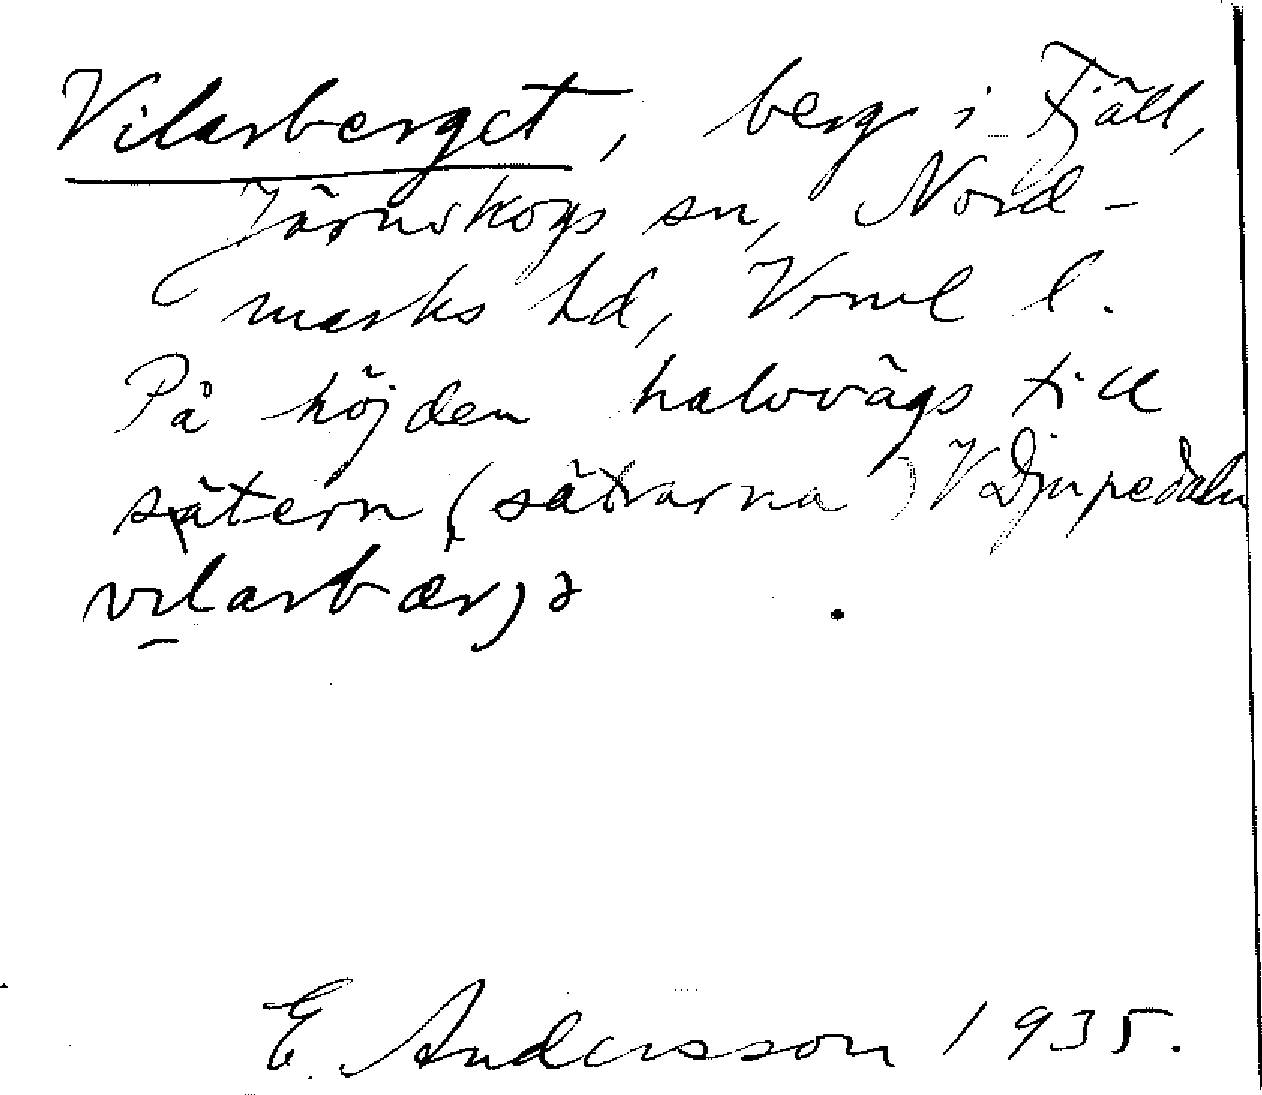 Vilarberget, berg i Fjäll,
Järnskogs sn, Nord-
marks hd, Vrml l.
På höjden halvvägs till
sätern (sätrarna) V Djupedalen
vılarbærjə
E. Andersson 1935.